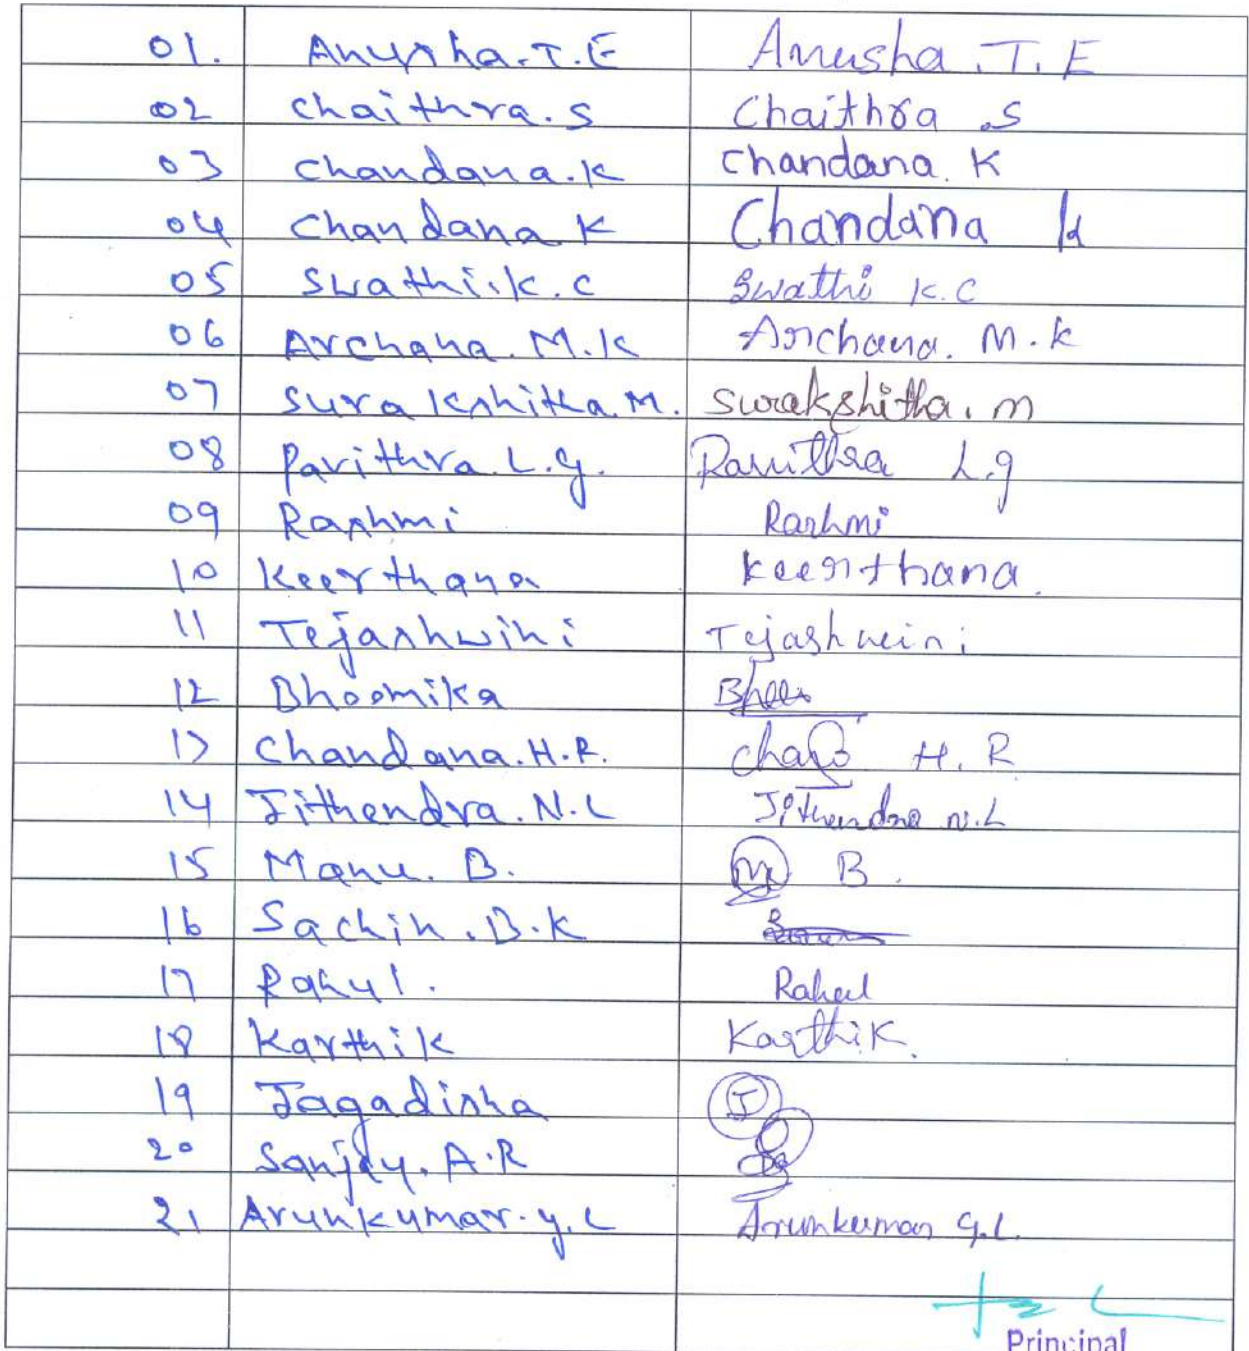 01. Anusha.T.E Anusha.T.E
02 Chaithra.S Chaithra.S
03 Chandana.K Chandana.K
04 Chandana K Chandana K
05 Swathi.K.C Swathi K.C
06 Archana.M.K Archana.M.K
07 Surakshitha.M. Surakshitha.m
08 Pavithra.L.G. Pavithra L.g
09 Rashmi Rashmi
10 Keerthana Keerthana.
11 Tejashwini Tejashwini
12 Bhoomika
13 Chandana.H.R. H.R
14 Jithendra.N.L Jithendra N.L
15 Manu.B. M B.
16 Sachin.B.K
17 Rahul. Rahul
18 Karthik Karthik.
19 Jagadisha J
20 Sanjay.A.R
21 Arunkumar.y.L Arunkumar y.L.
Principal